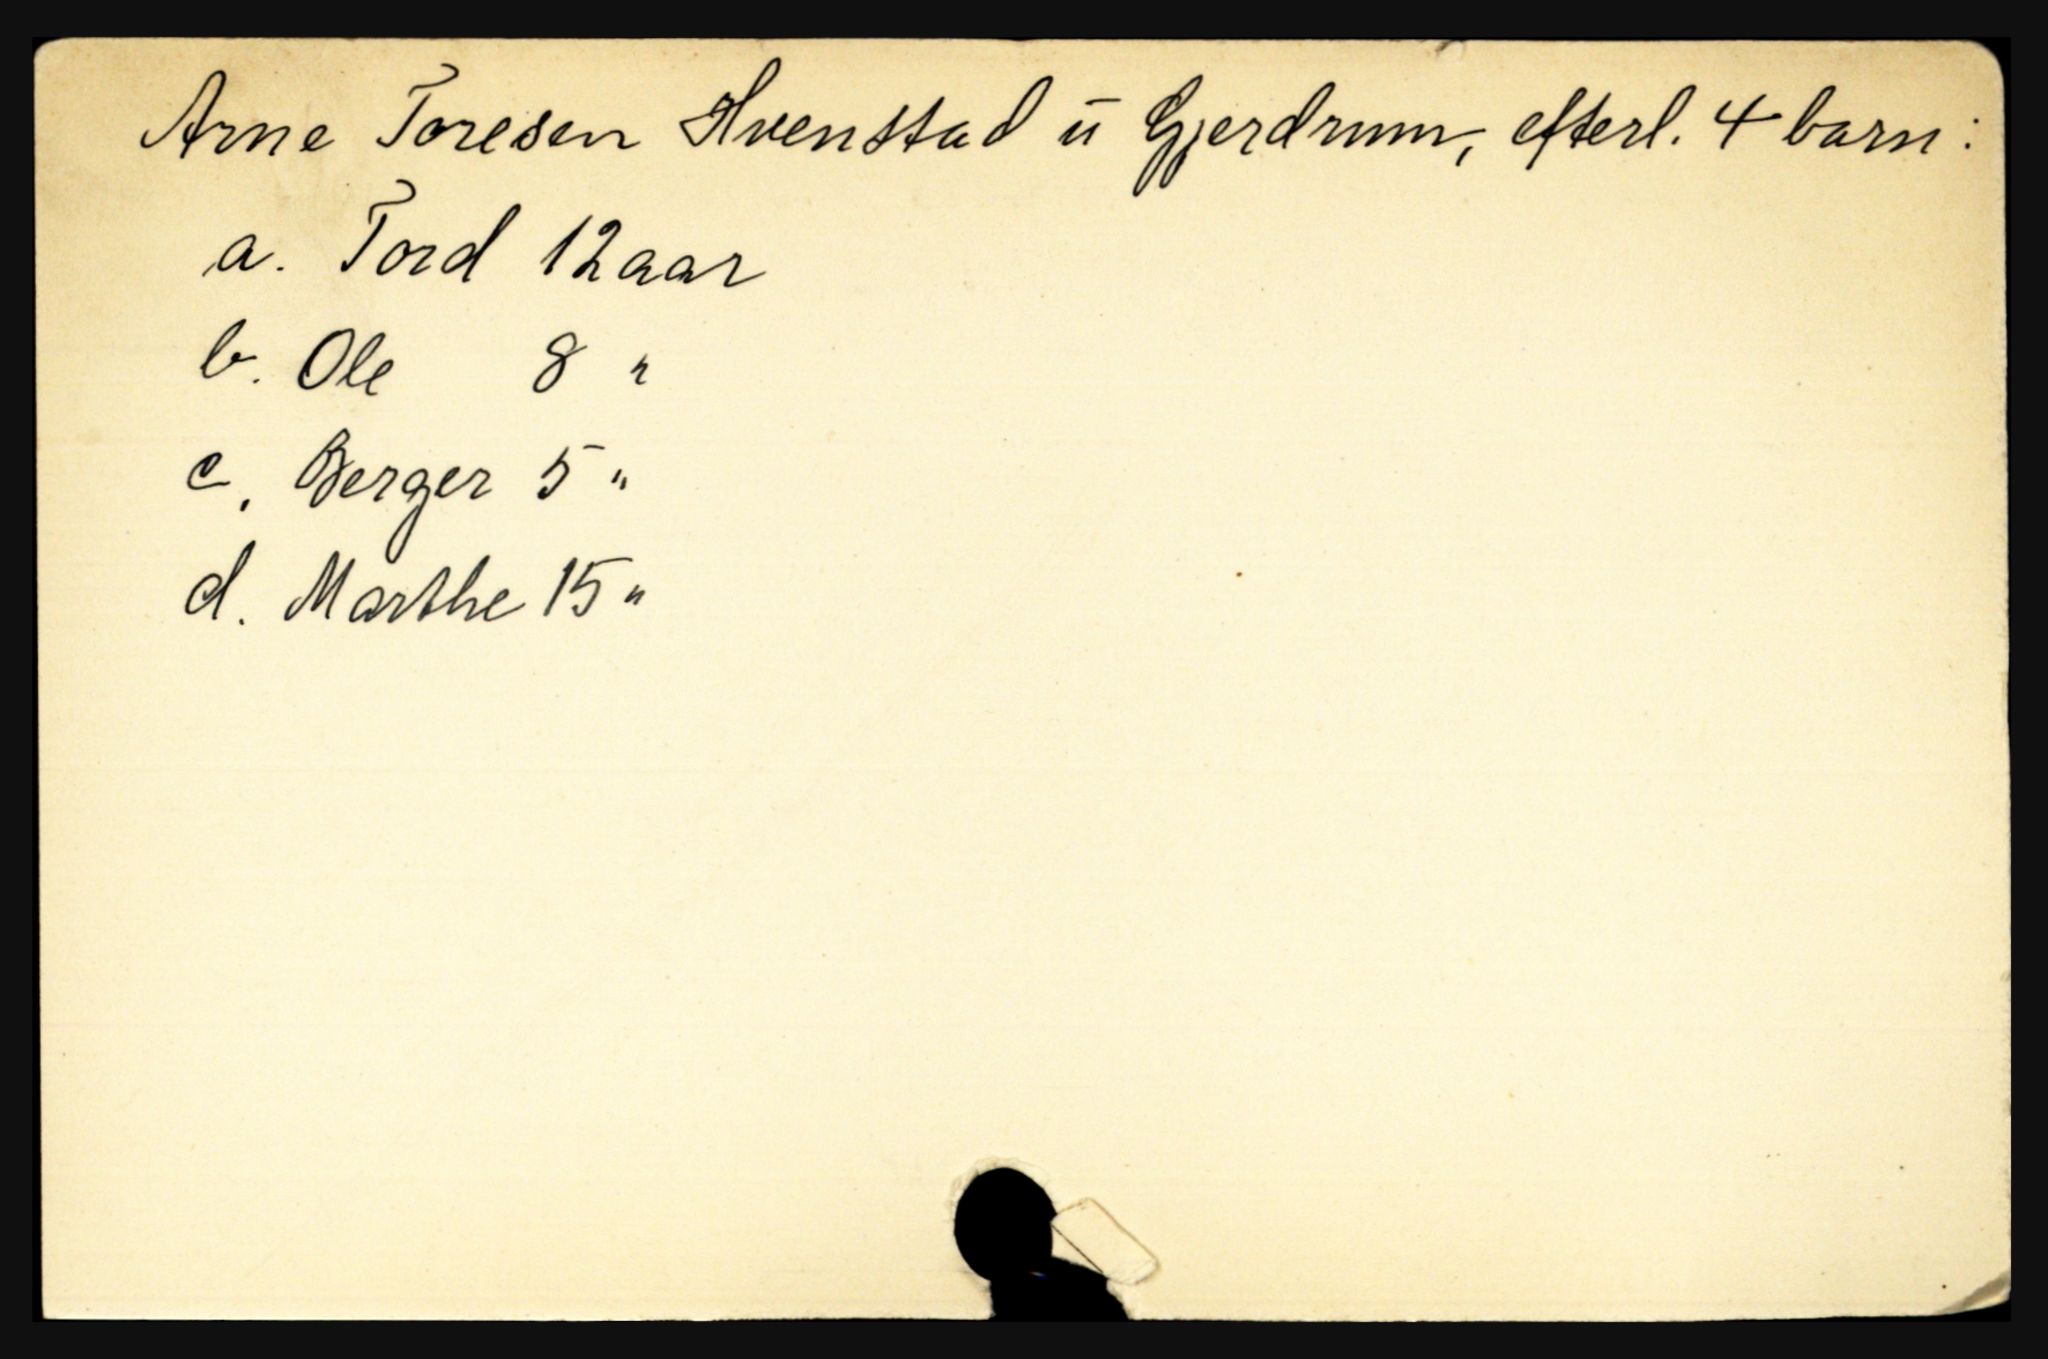 Arne Toresen Hvenstad ü Gjerdrum, efterl. 4 barn:
a. Tord 12 aar
b. Ole 8 "
c. Berger 5 "
d. Marthe 15 "